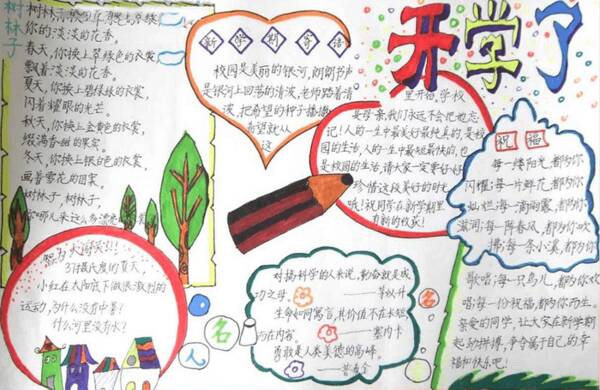 树林子
树林
你的淡淡的花香。
春天,你换上翠绿色的衣裳,
飘着淡淡的花香。
夏天,你换上碧绿绿的衣裳,
闪着耀眼的光芒。
秋天,你换上金黄色的衣裳,
缀满香甜的果实。
冬天,你换上银白色的衣裳,
画着雪花的图案。
树林子,树林子,
你哪儿来这么多漂亮
新学期寄语
校园是美丽的银河,朗朗书声
是银河上回荡的清波,老师踏着清
波,把希望的种子播撒
希望就从
这
开学了
里开始,学校
是母亲,我们永远不会把他忘
记!人的一生中最美好最快真的,是校
园的生活,人的一生中最短最快的,也
是校园的生活,请大家一定要好好
珍惜这段美好的时光
哦!祝同学在新学期里
有新的收获!
祝福
每一缕阳光,都为你
闪耀;每一片鲜花,都为你
灿烂;每一滴雨露,都为你
滋润;每一阵春风,都为你吹
拂;每一条小溪,都为你
歌唱;每一只鸟儿,都为你欢
唱;每一份祝福,都为你而生。
亲爱的同学,让大家在新学期
起劲拼搏,争夺属于自己的幸
福和快乐吧!
智力大闯关!!!
37摄氏度的夏天,
小红在太阳底下做很激烈的
运动,为什么没有中暑?
什么河里没有水?
名人名
对搞科学的人来说,勤奋就是成
功之母。
——茅以升
生命如同寓言,其价值不在长短
而在内容。
——塞内卡
勇敢是人类美德的高峰。
——普希金